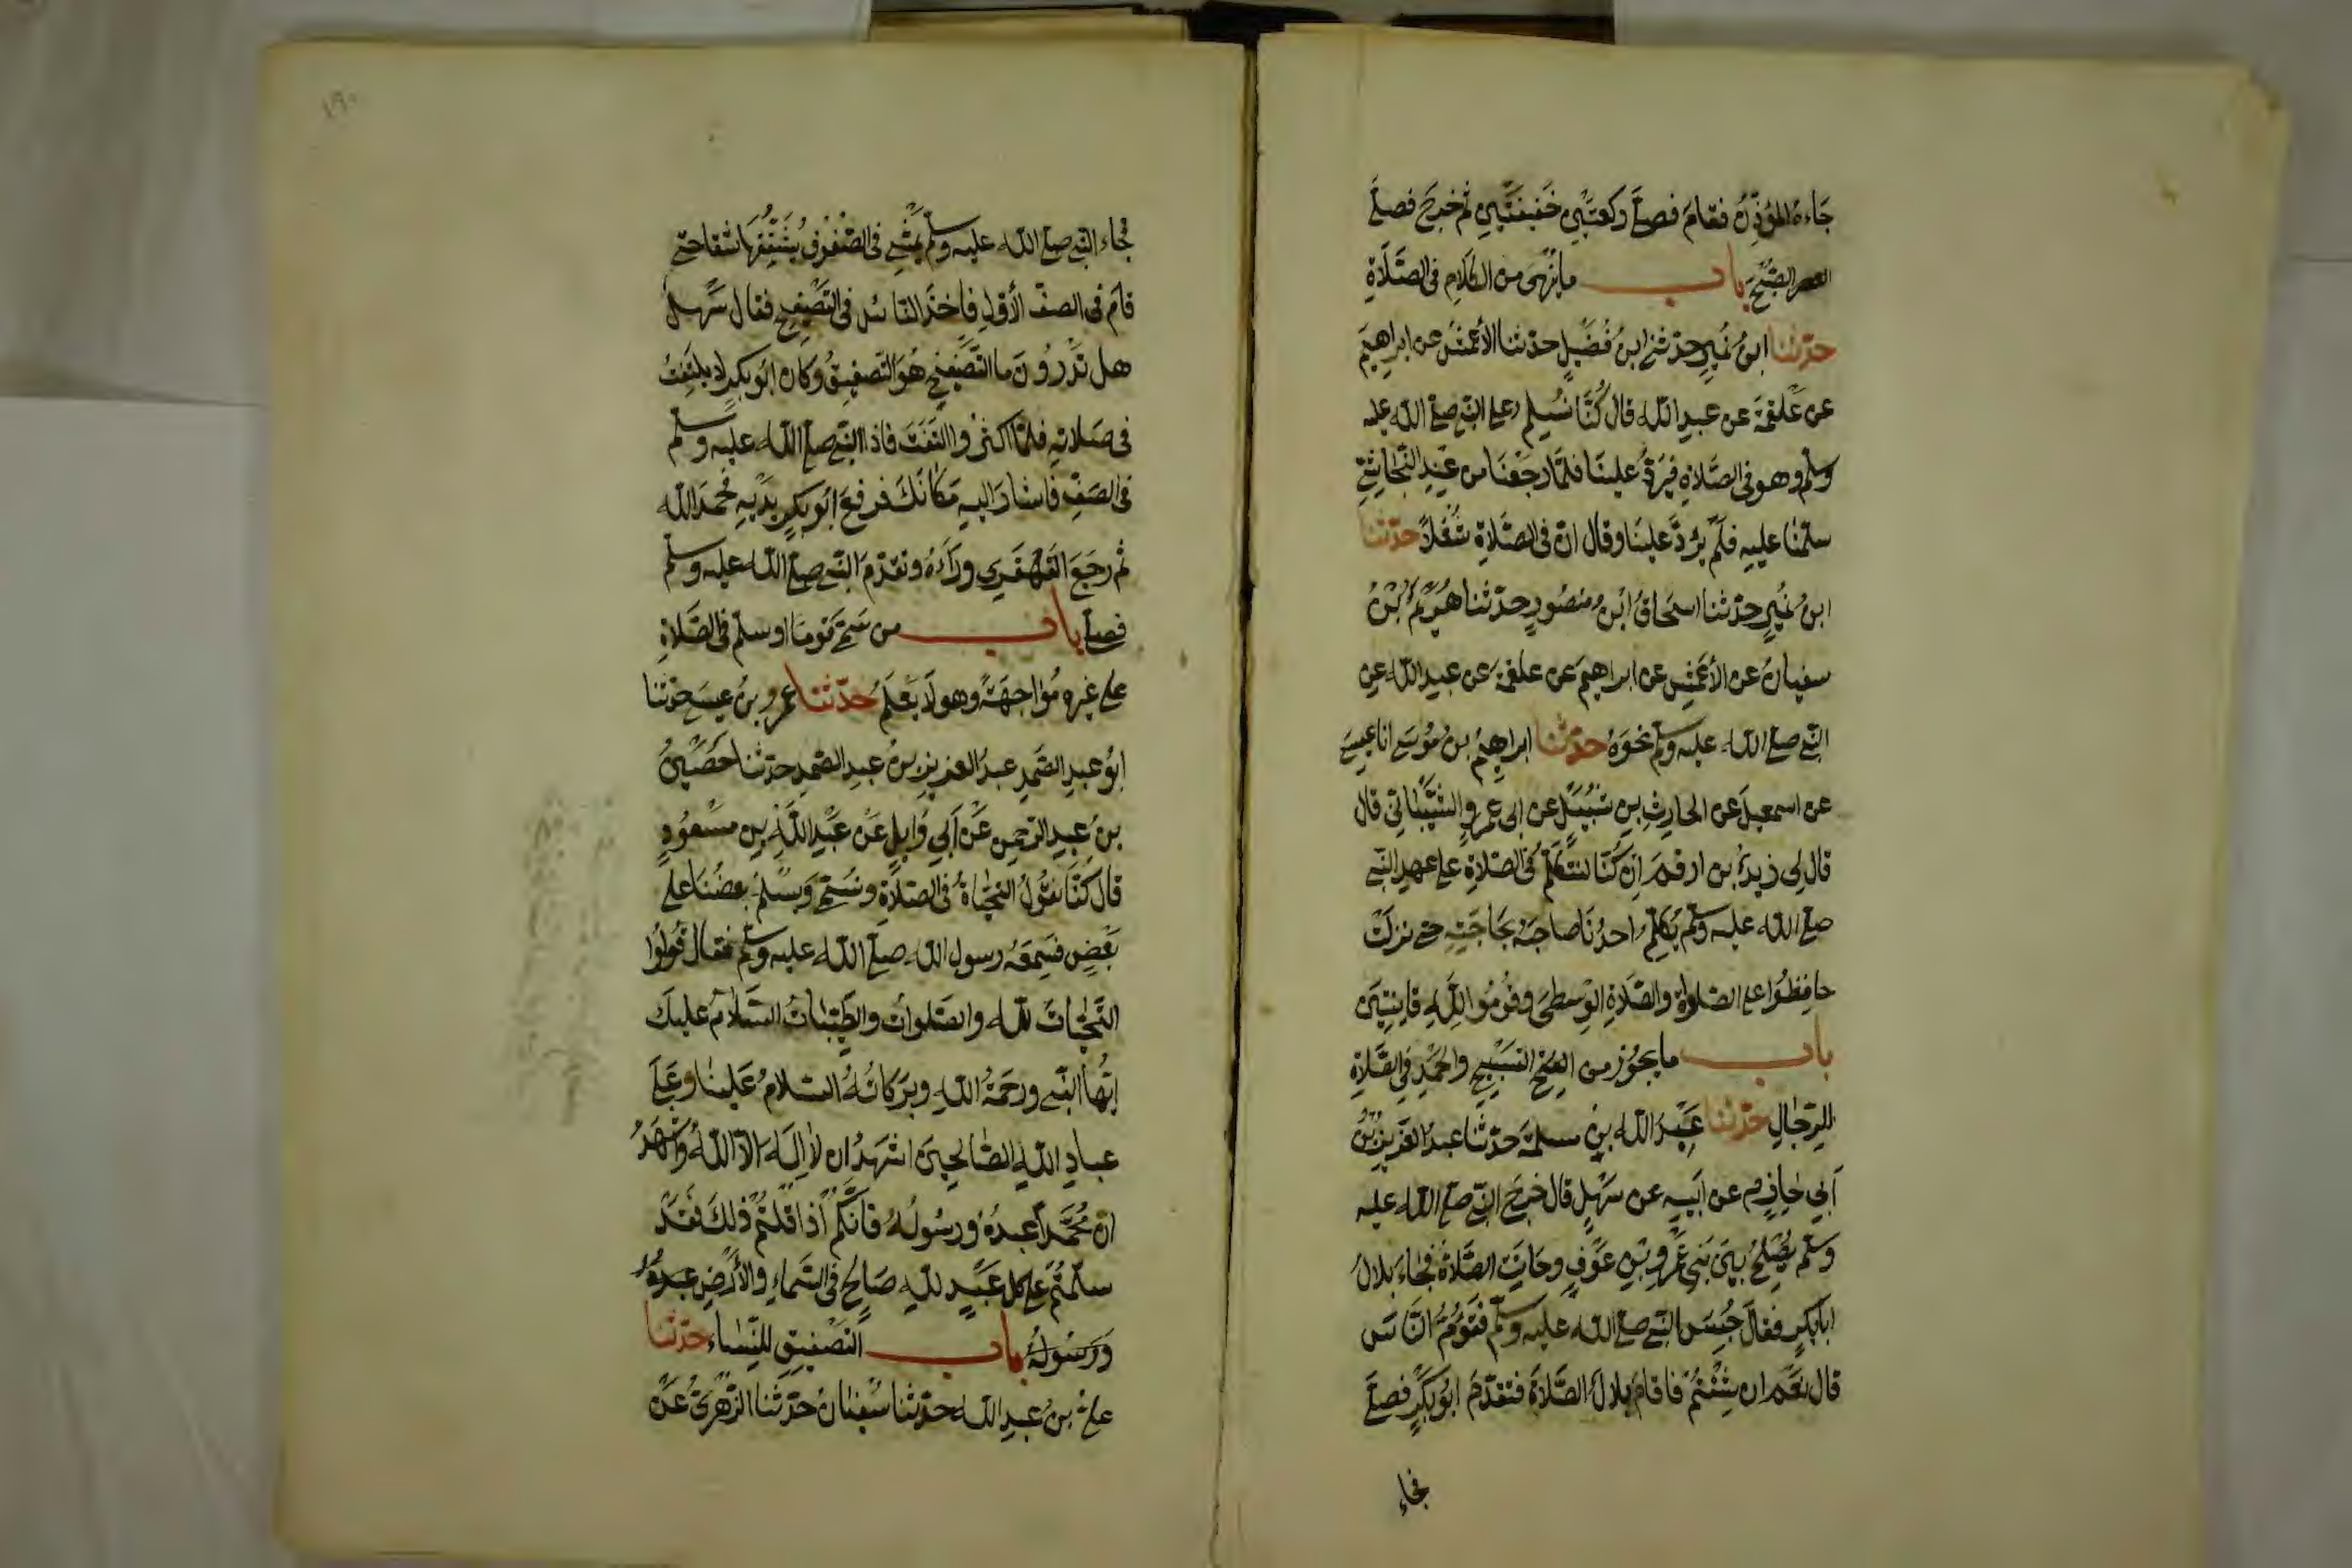 جَاءهُ المؤذِّنُ فقامَ فصلَّى ركعتَيْنِ خفيفتَيْنِ ثم خرجَ فصلَّى
الصُّبْحَ باب ما يُنْهى من الكلامِ فى الصَّلَاةِ
حدّثنا ابنُ نُمَيرٍ حدّثنى ابنُ فُضَيلٍ حدّثنا الأعْمَشُ عن ابراهيمَ
عن عَلقمَةَ عن عبدِ اللّٰه قال كُنَّا نُسَلِّمُ على النبى صلى اللّٰه عليه
وسلم وهو فى الصَّلاةِ فيَرُدُّ علينَا فلمَّا رجَعْنَا من عندِ النَّجَاشِىِّ
سلّمْنا عليهِ فلَمْ يَرُدَّ علينَا وقال انّ فى الصَّلَاةِ شُغْلًا حدّثنا
ابنُ نُمَيرٍ حدّثنا اسحَاقُ ابنُ منصُورٍ حدّثنا هُرَيْمُ بْنُ
سفيانَ عن الأعْمَشِ عن ابراهيمَ عن علقمَةَ عن عبدِ اللّٰه عن
النبى صلى اللّٰه عليه وسلم نحْوَهُ حدّثنا ابراهيمُ بنُ مُوسَى انا عيسى
عن اسمعيلَ عن الحارثِ بنِ شُبَيْلٍ عن ابى عمرٍو الشَّيْبَانِىِّ قال
قال لى زيدُ بن ارقم اِنْ كُنَّا لنتكلَّمُ فى الصّلاةِ على عهدِ النبى
صلى اللّٰه عليه وسلم يُكلِّمُ احدُنَا صاحبَهُ بحَاجَتِهِ حتى نزلَتْ
حافِظُوا على الصّلواةِ والصّلاةِ الوُسطَى وقُومُوا لِلّٰهِ قانِتِينَ
باب ما يجُوزُ من التسْبِيحِ والحَمْدِ فى الصَّلَاةِ
للرّجَالِ حدّثنا عبدُ اللّٰه بنُ سلمَةَ حدّثنا عبدُ العزيزِ بْنُ
أبى حازِمٍ عن أبيهِ عن سَهْلٍ قال خرجَ النبى صلى اللّٰه عليه
وسلم يُصْلِحُ بينَ بَنى عَمْرِو بْنِ عَوْفٍ وحَانَتِ الصَّلَاةُ فجَاءَ بلالٌ
ابابكرٍ فقالَ حُبِسَ النبى صلى اللّٰه عليه وسلم فتَؤُمُّ النَّاسَ
قال نعَم ان شِئْتُمْ فاقامَ بلالٌ الصَّلَاةَ فتقدّمَ ابُوبَكْرٍ فصلَّى
فجاء
١٩٠
فجاء النبى صلى اللّٰه عليه وسلم يمْشِى فى الصُّفُوفِ يَشُقُّهَا شقا حتى
قام فى الصفّ الأوّلِ فاخَذَ الناسُ فى التَصْفِيحِ فقال سَهل
هل تَدْرُونَ ما التّصْفِيحُ هُوَ التّصفيقُ وكان ابُو بكرٍ لا يلتَفِتُ
فى صَلاتِهِ فلمّا اكثرُوا التفَتَ فاذا النبى صلى اللّٰه عليه وسلم
فى الصَفِّ فاشارَ اليهِ مَكَانَكَ فرفعَ ابُو بكرٍ يدَيْهِ فحمدَ اللّٰه
ثم رجَعَ القَهْقَرى ورَاءَهُ وتقدّمَ النبى صلى اللّٰه عليه وسلم
فصلَّى باب من سَمَّى قَومًا او سلّم فى الصَّلاةِ
على غيرهِ مُوَاجهَةً وهو لَا يَعْلَمُ حدّثنا عمرو بنُ عيسى حدّثنا
ابُو عبدِ الصَّمَدِ عبدُ العزيزِ بنُ عبدِ الصّمدِ حدّثنا حُصَيْنُ
بنُ عبدِ الرّحمنِ عَنْ أبى وَائِلٍ عَنْ عَبْدِ اللّٰهِ بنِ مسْعُودٍ
قال كنَّا نقُولُ التحِيَّاةُ فى الصّلَاةِ ونُسَمِّى ويُسَلِّمُ بعضُنَا على
بَعْضٍ فسَمِعَهُ رسول اللّٰه صلى اللّٰه عليه وسلم فقال قُولُوا
التَّحِيَّاتُ للّٰه والصّلوات والطّيّبَاتُ السَّلامُ عليكَ
ايّهَا النبى ورحمَةُ اللّٰهِ وبرَكاتُهُ السّلامُ عَلينَا وعَلَى
عبادِ اللّٰهِ الصّالحينَ اشهَدُ ان لا اِلَهَ الاّ اللّٰهُ واشْهَدُ
انّ مُحَمَّداً عبدُهُ ورسُولُهُ فانَّكُمْ اذا قلتُمْ ذٰلِكَ فقَدْ
سلّمْتُمْ على كل عَبْدٍ للّٰهِ صَالحٍ فى السَّمَاءِ والأرْضِ عبدُهُ
وَرَسُولُهُ باب التّصْفيقِ للنِّسَاءِ حدّثنا
علىّ بنُ عبدِ اللّٰه حدّثنا سُفْيَانُ حدّثنا الزُّهْرِىُّ عَنْ